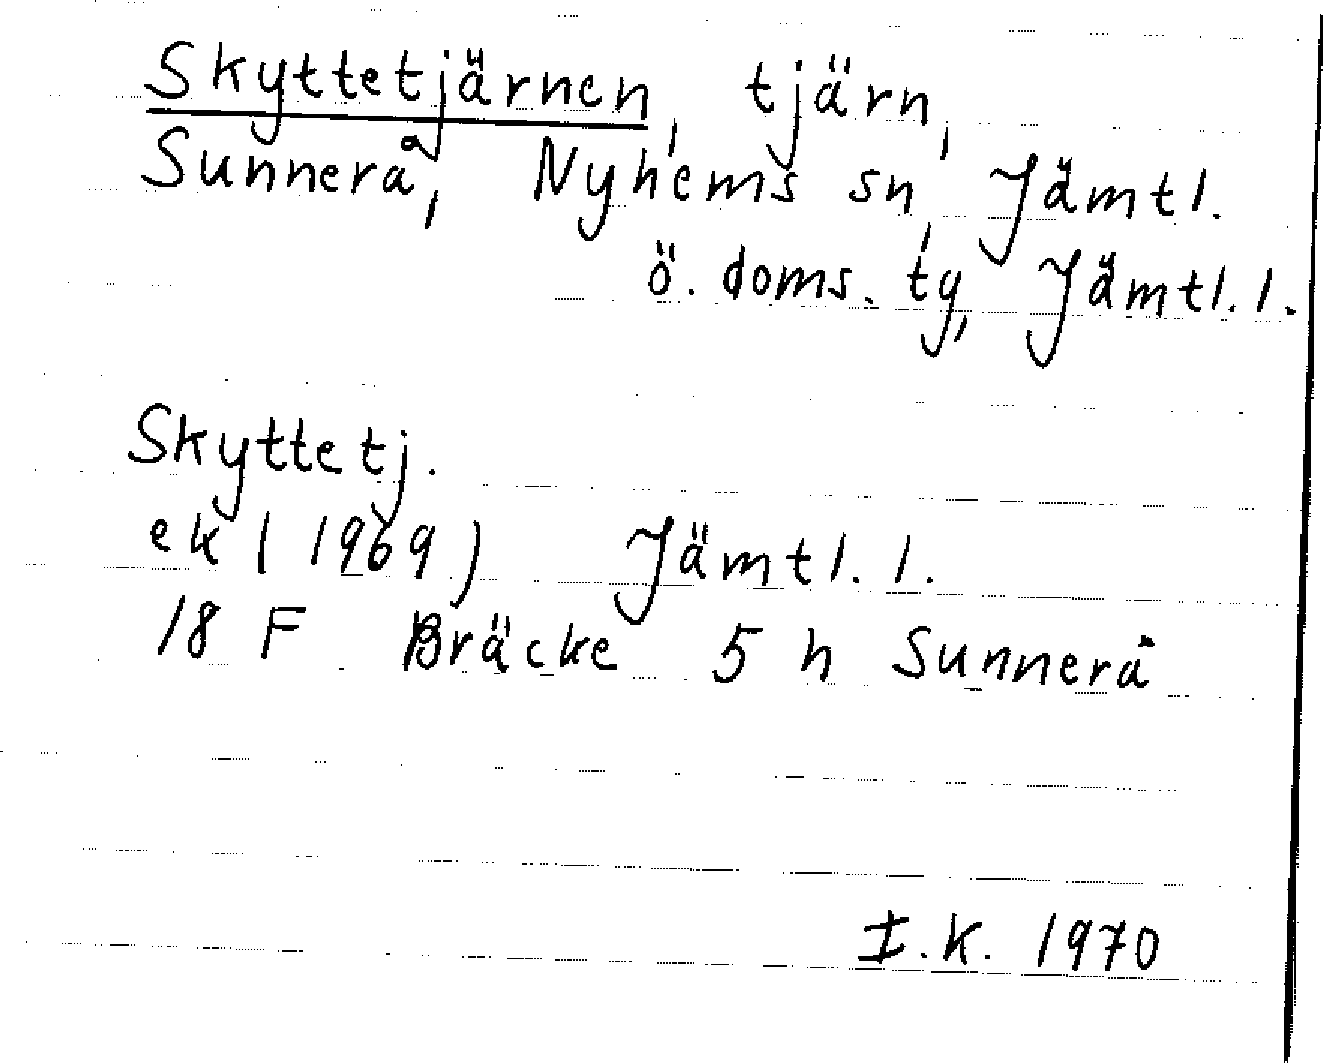 Skyttetjärnen, tjärn,
Sunnerå, Nyhems sn, Jämtl.
ö. doms. tg, Jämtl. l.
Skyttetj.
ek (1969) Jämtl. l.
18 F Bräcke 5 h Sunnerå
I.K. 1970